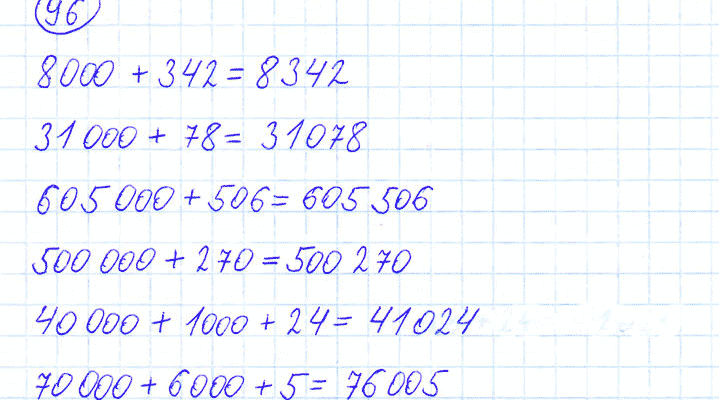 96
8000 + 342 = 8342
31 000 + 78 = 31078
605 000 + 506 = 605 506
500 000 + 270 = 500 270
40 000 + 1000 + 24 = 41024
70 000 + 6000 + 5 = 76005